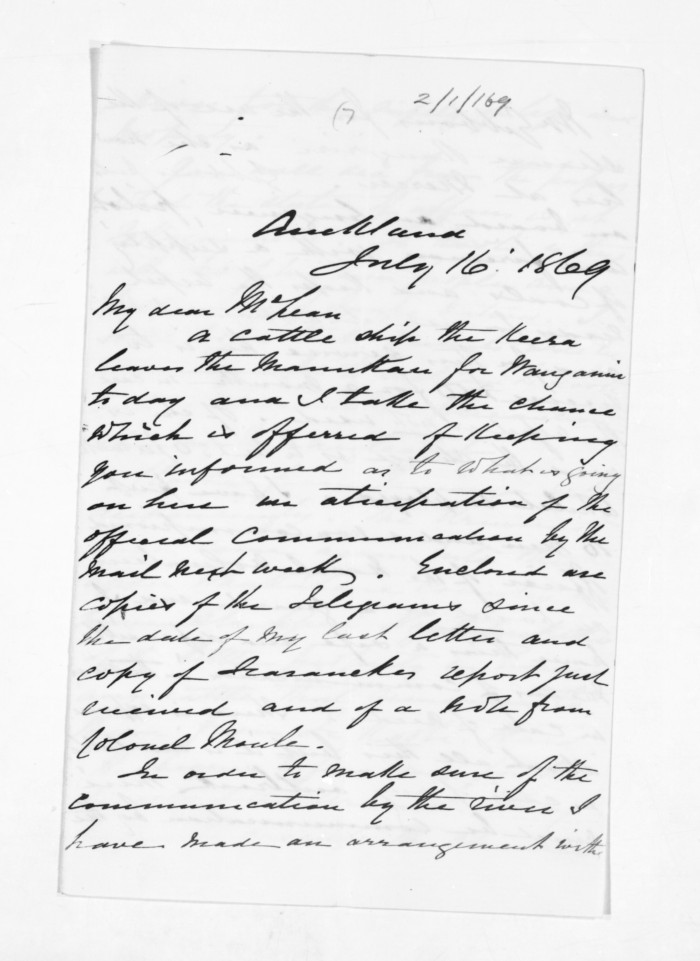 2/1/169
(7
Auckland
July 16. 1869
My dear McLean
A cattle ship the Keera
leaves the Manukau for Wanganui
to day and I take the chance
which is offerred of keeping
you informed as to what is going
on here in aticipation of the
official communication by the
mail next week. Enclosed are
copies of the Telegrams since
the date of my last letter and
copy of report just
received and of a note from
Colonel Moule.
In order to make sure of the
communication by the river I
have made an arrangement with